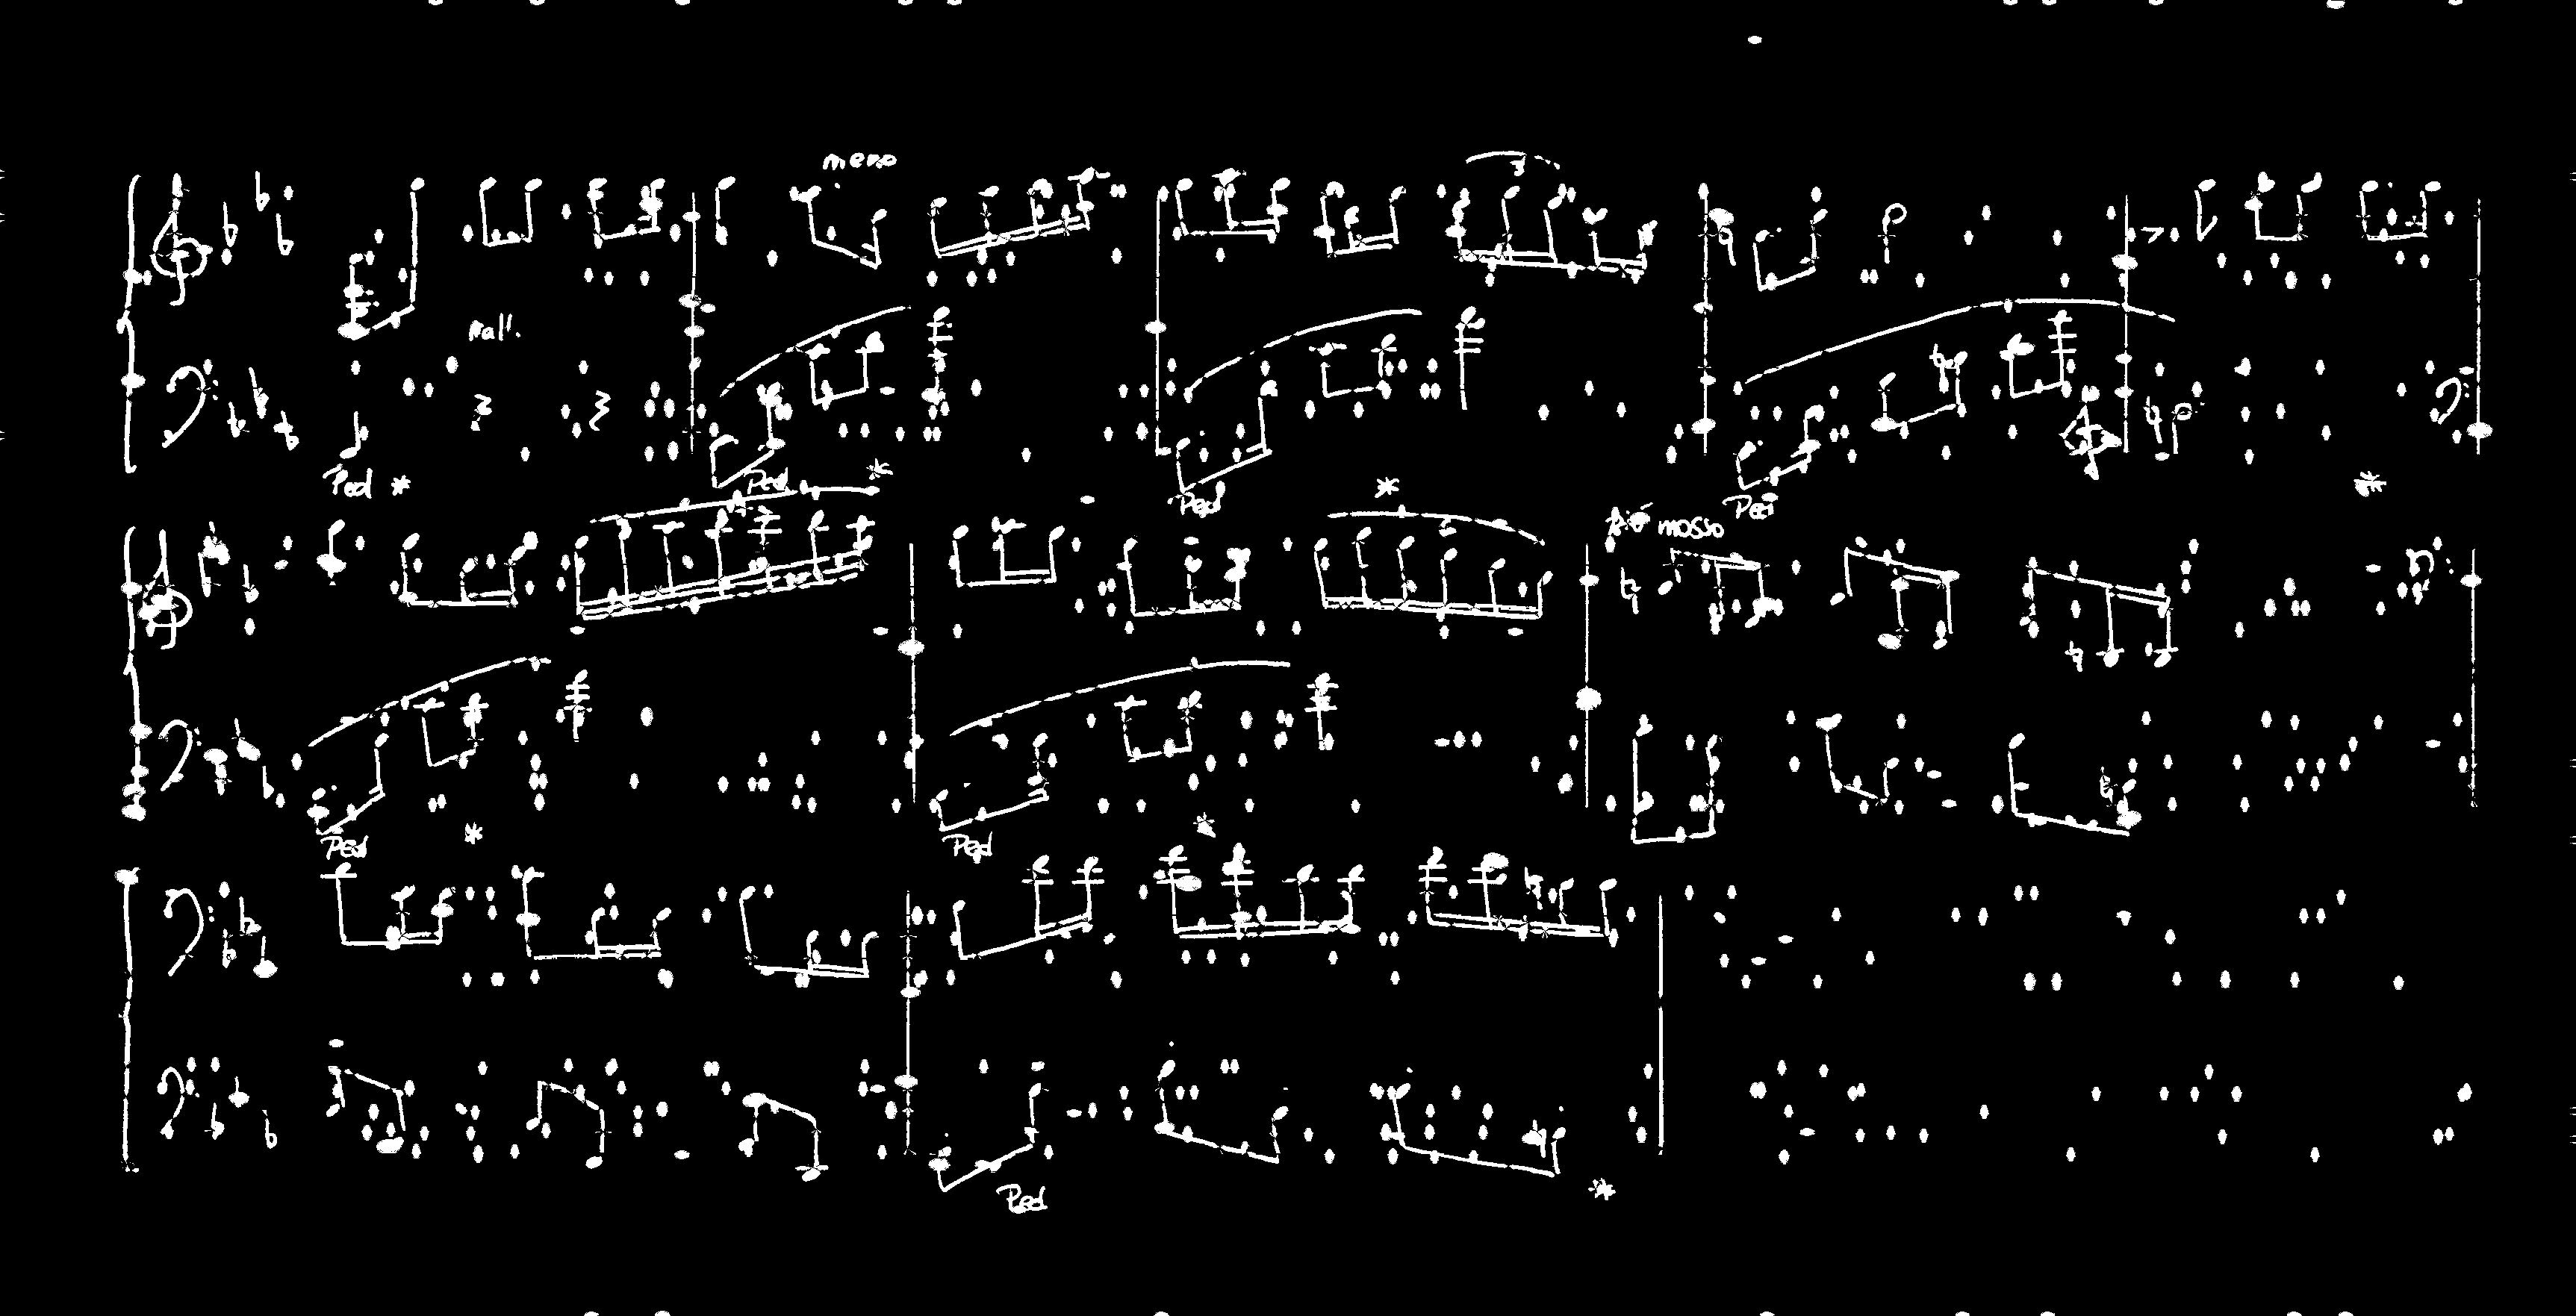 meno
3
Rall.
Ped * Ped * Ped * Ped *
Più mosso
Ped * Ped *
Ped *